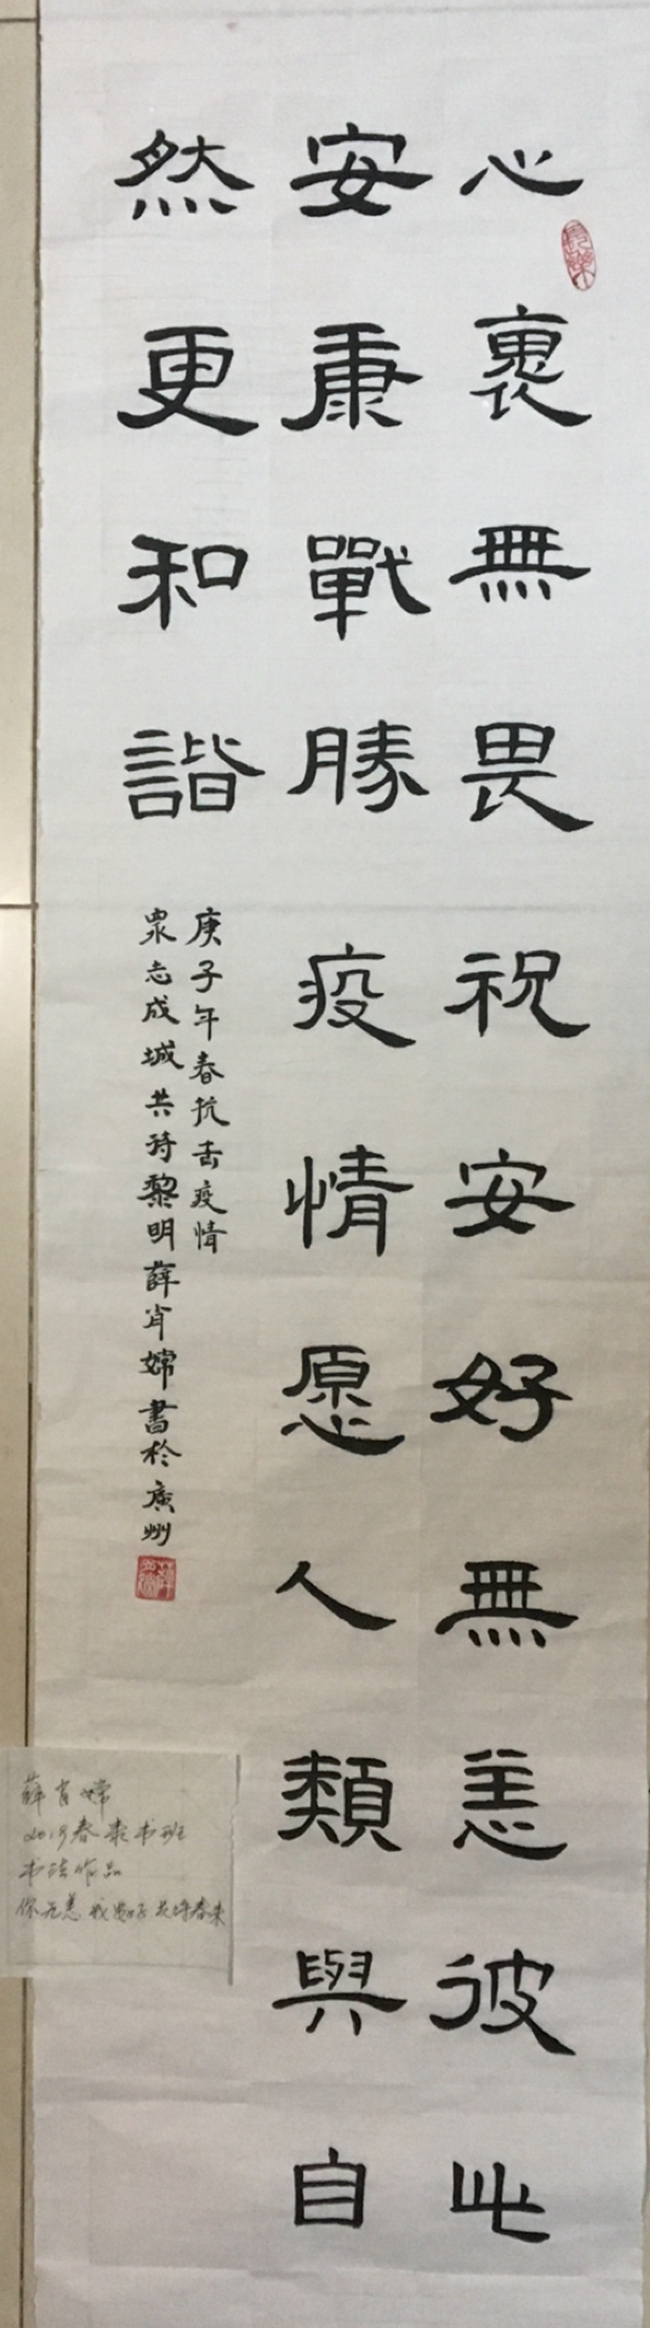 心裏無畏祝安好無恙彼此
安康戰勝疫情愿人類與自
然更和諧
庚子年春抗击疫情
衆志成城共待黎明薛肖嫦書於廣州
長樂
薛肖嫦
2019春隶书班
书法作品
你无恙 我安好 共待春来